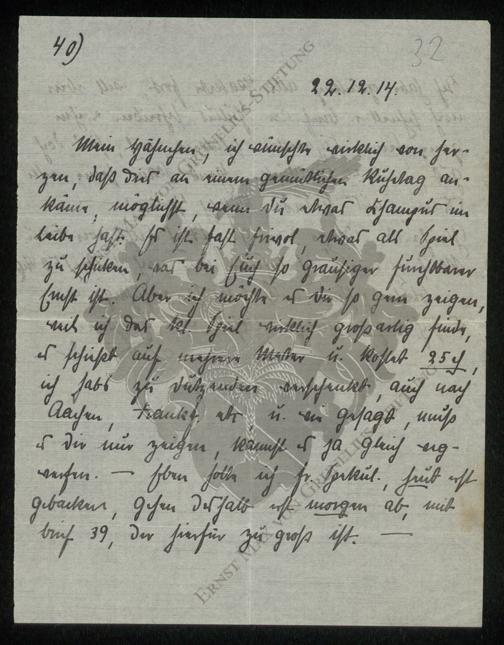 40)
32
22.12.14.
Mein Hähnchen, ich wünschte wirklich von Her-
zen, daß dies an einem gemütlichen Ruhetag an-
käme, möglichst, wenn du etwas Champus im
Leibe hast. Es ist fast frivol, etwas als Spiel
zu schicken, was bei Euch so grausiger furchtbarer
Ernst ist. Aber ich möchte es dir so gern zeigen,
weil ich das kl. Spiel wirklich großartig finde,
es schießt auf mehrere Meter u. kostet 25 ₰,
ich habs zu Dutzenden verschenkt, auch nach
Aachen, Frankf. etc u. wie gesagt, muß
es dir nur zeigen, kannst es ja gleich weg-
werfen. — Eben holte ich fr. Spekul., heut erst
gebacken, gehen deshalb erst morgen ab, mit
Brief 39, der hierfür zu groß ist. —
ERNST MAX VON GRUNELIUS-STIFTUNG